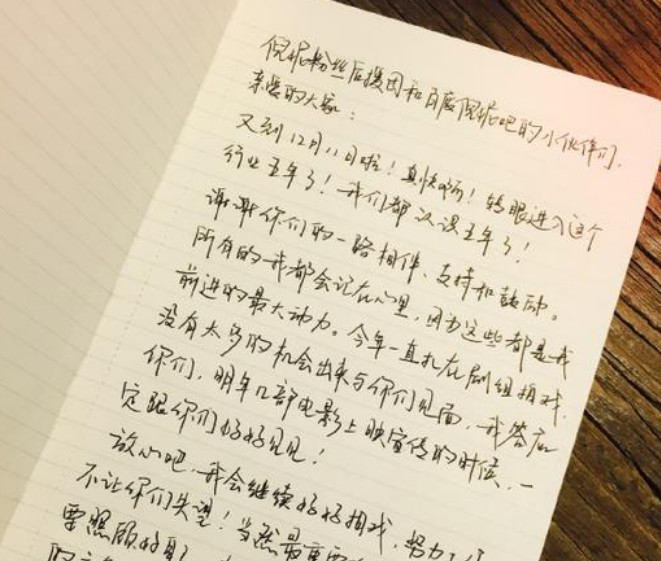 倪妮粉丝后援团和百度倪妮吧的小伙伴们,
亲爱的大家:
又到12月11日啦!真快啊!转眼进入这个
行业五年了!我们都认识五年了!
谢谢你们的一路相伴、支持和鼓励。
所有的一我都会记在心里,因为这些都是我
前进的最大动力。今年一直扎在剧组拍戏,
没有太多的机会出来与你们见面,我答应
你们,明年几部电影上映宣传的时候,一
定跟你们好好见见!
放心吧,我会继续好好拍戏,努力
不让你们失望!当然最重要
要照顾好自